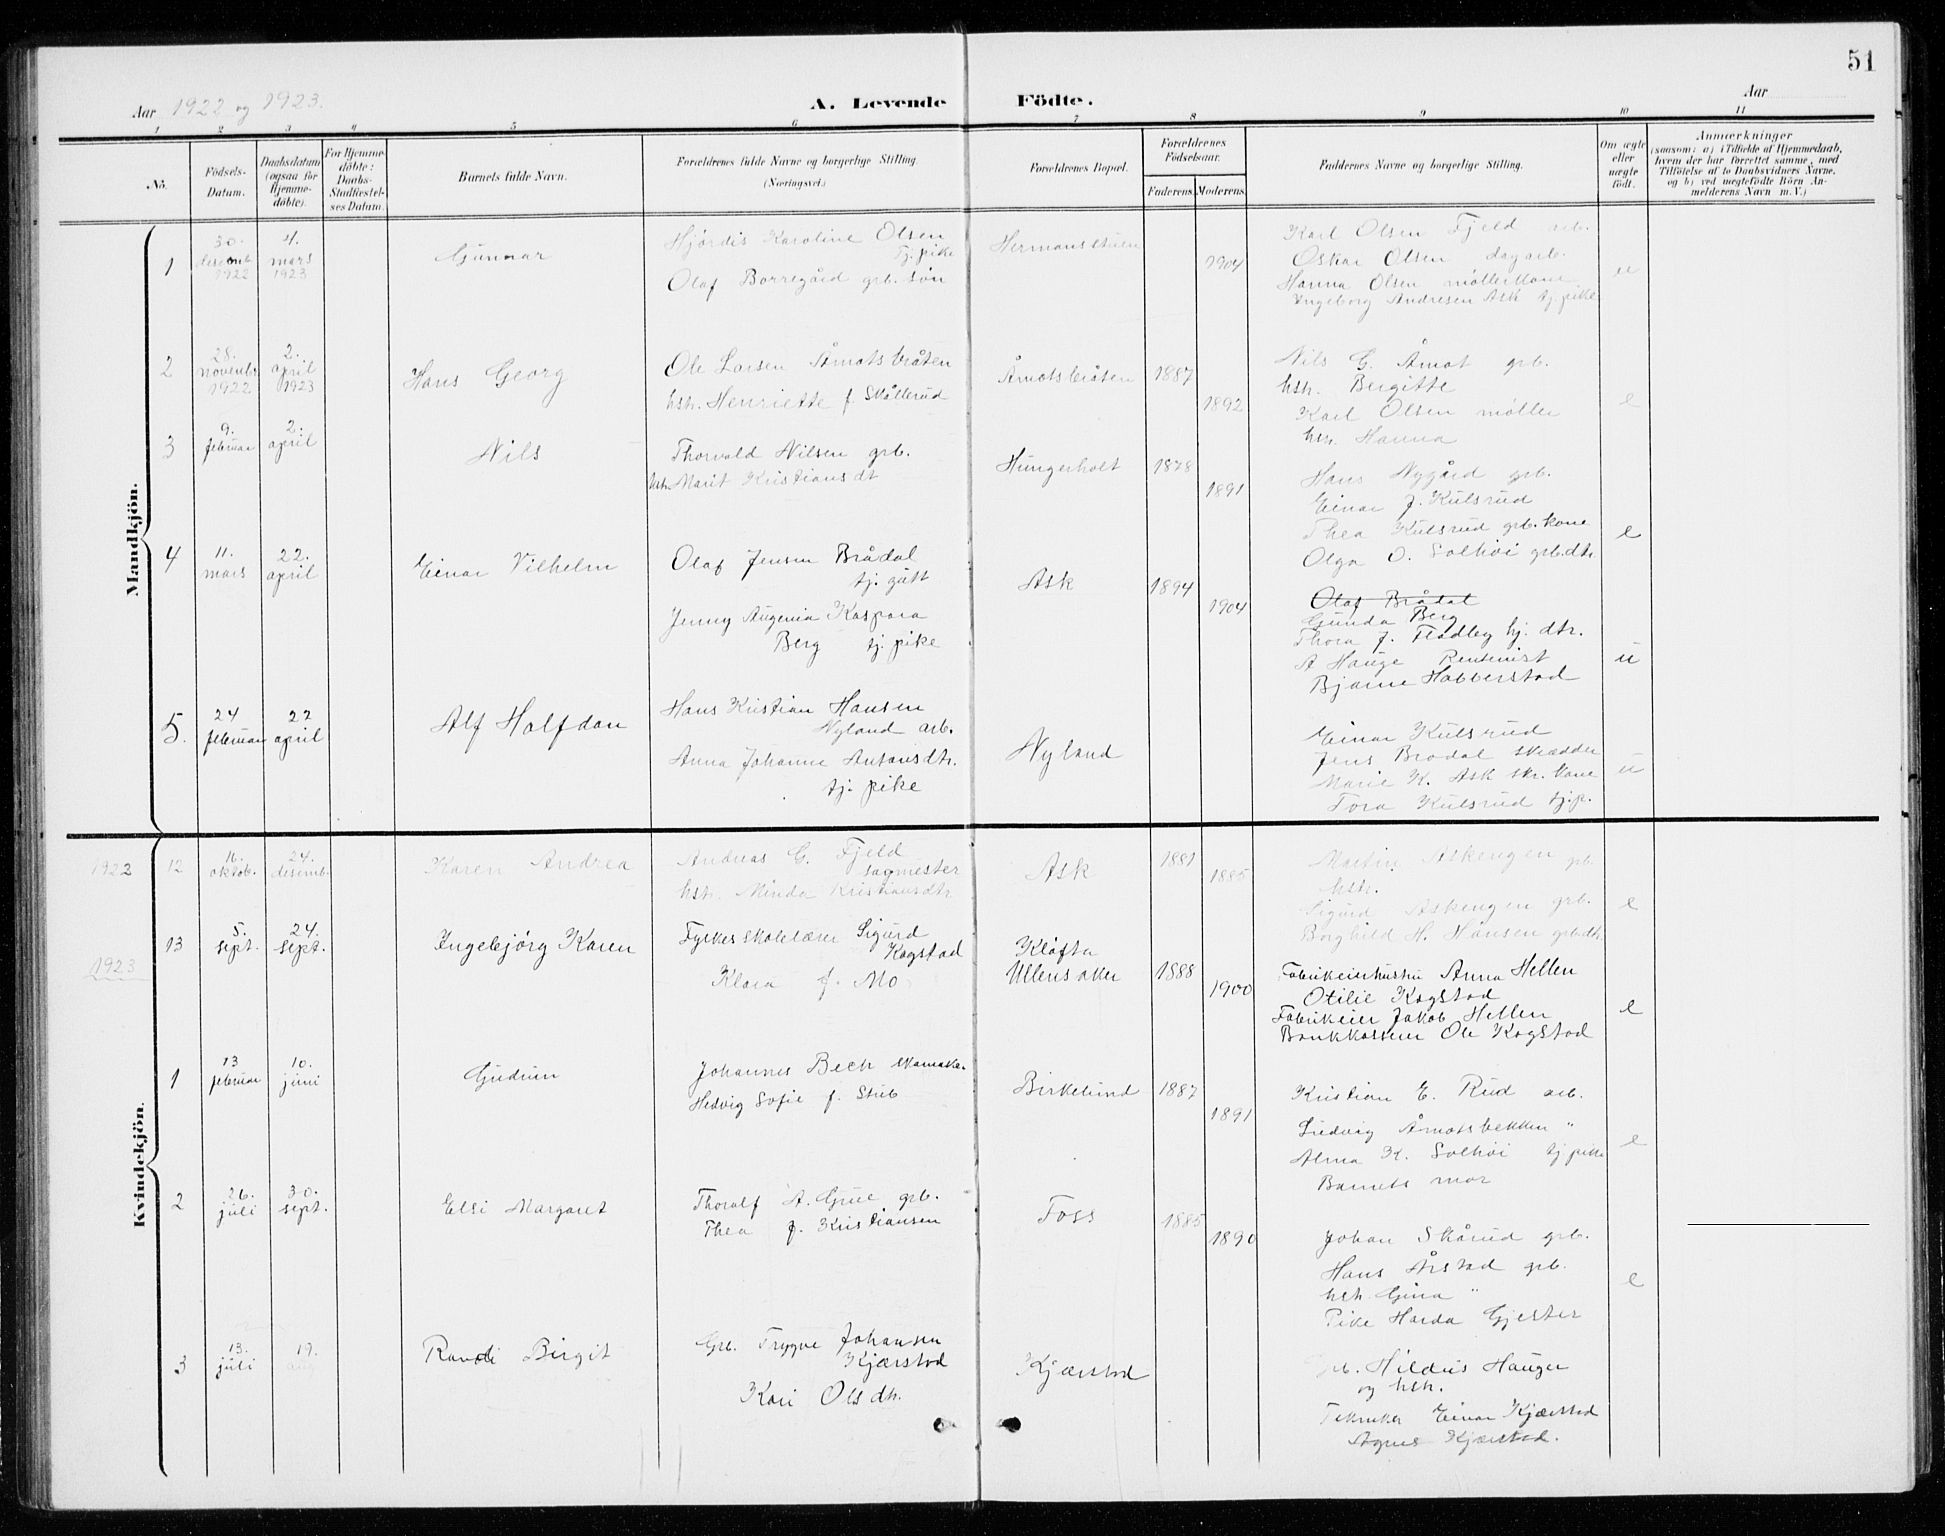 51
Aar 1922 og 1923.
A. Levende Födte.
Aar
1 2 3 4 5 6 7 8 9 10 11
No.
Födsels-
Datum.
Daabsdatum
(ogsaa for
Hjemme-
döbte).
For Hjemme-
döbte:
Daabs-
Stadfæstel-
ses Datum.
Barnets fulde Navn.
Forældrenes fulde Navne og borgerlige Stilling.
(Næringsvei.)
Forældrenes Bopæl.
Forældrenes
Födselsaar.
Faderens. Moderens.
Faddernes Navne og borgerlige Stilling.
Om ægte
eller
uægte
födt.
Anmærkninger
(saasom: a) i Tilfælde af Hjemmedaab,
hvem der har forrettet samme, med
Tilföielse af to Daabsvidners Navne,
og b) ved uægtefödte Börn An-
melderens Navn m. V.)
Mandkjön.
1
30.
desemb.
1922
4.
mars
1923
Gunnar
Hjørdis Karoline Olsen
tj. pike
Olaf Borregård grb. søn
Hermansstuen
1904
Karl Olsen Fjeld arb.
Oskar Olsen dagarb.
Hanna Olsen møllerkone
Ingeborg Andresen Ask tj. pike
u
2
28.
novemb.
1922
2.
april
1923
Hans Georg
Ole Larsen Åmotsbråten
hstr. Henriette f. Skøllerud
Åmotsbråten
1887
1892
Nils G. Åmot grb.
hstr. Bergitte
Karl Olsen møller
hstr. Hanna
e
3
9.
februar
2.
april
Nils
Thorvald Nilsen grb.
hstr. Marit Kristiansdt
Hungerholt
1878
1891
Hans Nygård grb.
Einar J. Kulsrud
Thea Kulsrud grb. kone
Olga O. Solhøi grb.dtr.
e
4
11.
mars
22.
april
Einar Vilhelm
Olaf Jensen Brådal
tj. gutt
Jenny Augenia Kaspara
Berg tj. pike
Ask
1894
1904
Olaf Brådal
Gunda Berg
Thora J. Fladby hj. dtr.
A Hauge Rentenist
Bjarne Habberstad
u
5.
24
februar
22
april
Alf Halfdan
Hans Kristian Hansen
Nyland arb.
Anna Johanne Antonsdtr.
tj. pike
Nyland
Einar Kulsrud
Jens Brodal skrædder
Marie K. Ask skr. kone
Tora Kulsrud tj.p.
u
Kvindekjön.
1922
12
16.
oktob.
24.
desemb.
Karen Andrea
Andreas G. Fjeld
sagmester
hstr. Minda Kristiansdtr
Ask
1881
1885
Martin Askengen grb.
hstr.
Sigurd Askengen grb.
Borghild H. Hansen grb.dtr.
e
13
5.
sept.
24.
sept.
Ingebjørg Karen
Fyrkesskolelærer Sigurd
Kogstad
Klara f. Mo
Kløfta
Ullensaker
1888
1900
Fabrikeierhustru Anna Hellen
Otilie Kogstad
Fabrikeier Jakob Hellen
Bankkasserer Ole Kogstad
e
1923
1
13
februar
10.
juni
Gudrun
Johannes Bech skomaker
Hedvig Sofie f. Stub
Birkelund
1887
1891
Kristian E. Rud arb.
Ludvig Åmotsbekken "
Alma K. Solhøi tj pike
Barnets mor
e
2
26.
juli
30.
sept.
Elsi Margaret
Thoralf A. Grue grb.
Thea f. Kristiansen
Foss
1885
1890
Johan Skårud grb.
Hans Årstad grb.
hstr. Gina "
Pike Harda Gjester
e
3
13.
juli
19.
aug.
Randi Birgit
Grb. Trygve Johansen
Kjærstad
Kari Olsdtr.
Kjærstad
Grb. Hildus Hauger
og hstr.
Tekniker Einar Kjærstad
Agnes Kjærstad.